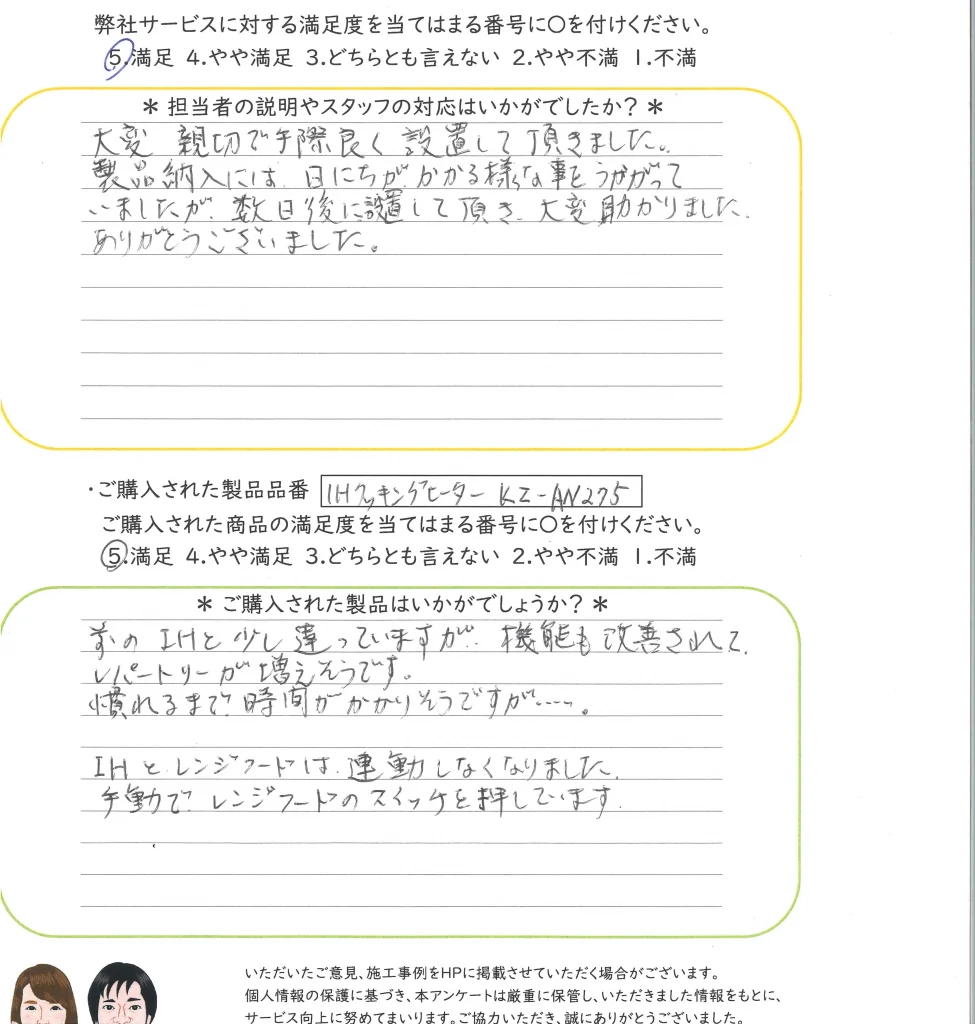 弊社サービスに対する満足度を当てはまる番号に〇を付けください。
5.満足 4.やや満足 3.どちらとも言えない 2.やや不満 1.不満
＊ 担当者の説明やスタッフの対応はいかがでしたか？ ＊
大変 親切で手際良く 設置して頂きました。
製品納入には、日にちが、かかる様な事をうかがって
いましたが、数日後に設置して頂き、大変助かりました、
ありがとうございました。
・ご購入された製品品番 IHクッキングヒーター KZ-AN275
ご購入された商品の満足度を当てはまる番号に〇を付けください。
5.満足 4.やや満足 3.どちらとも言えない 2.やや不満 1.不満
＊ ご購入された製品はいかがでしょうか？ ＊
前の IHと少し違っていますが、機能も改善されて、
レパートリーが増えそうです。
慣れるまで時間がかかりそうですが……。
IHと、レンジフードは、連動しなくなりました、
手動で、レンジフードのスイッチを押しています、
いただいたご意見、施工事例をHPに掲載させていただく場合がございます。
個人情報の保護に基づき、本アンケートは厳重に保管し、いただきました情報をもとに、
サービス向上に努めてまいります。ご協力いただき、誠にありがとうございました。